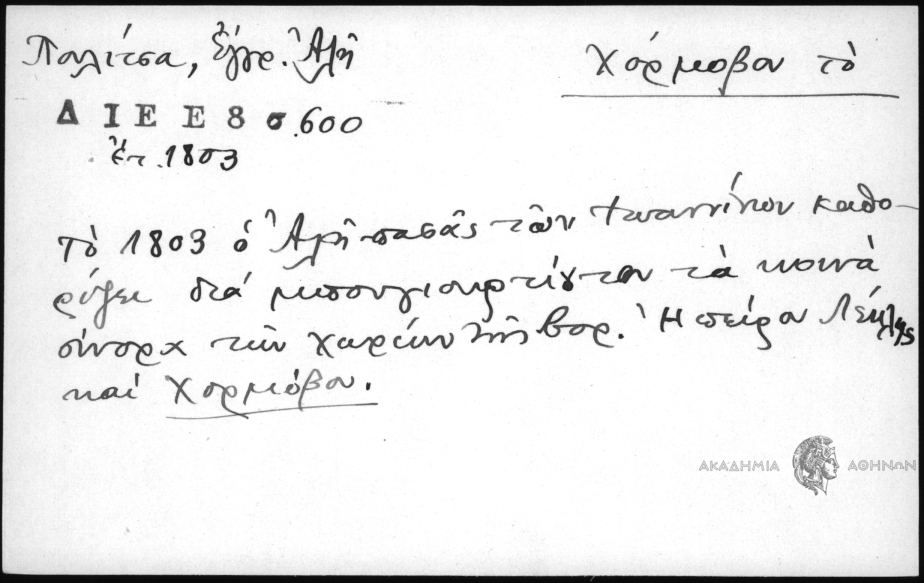 Πολίτσα, Ἐγγρ. Ἀλῆ
Χόρμοβον τὸ
Δ Ι Ε Ε 8 σ. 600
ἔτ. 1803
Τὸ 1803 ὁ Ἀλῆ πασᾶς τῶν Ἰωαννίνων καθο-
ρίζει διά μπουγιουρτίου του τὰ κοινὰ
σύνορα τῶν χωρίων τῆς βορ. Ἠπείρου Λέκλης
καί Χορμόβου.
ΑΚΑΔΗΜΙΑ ΑΘΗΝΩΝ